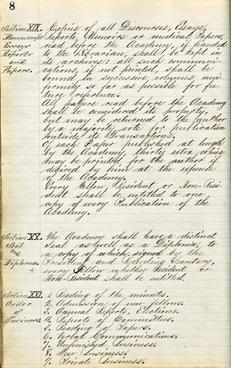 8
Section XIX. Copies of all Discourses, Essays,
Manuscript Reports, Memoirs or medical Papers,
Essays read before the Academy, & handed
Reports to the Librarian, shall be kept in
and its archives: all such communi-
Papers. cations, if not printed, shall be
bound in successive volumes uni-
formly so far as possible for fu-
ture reference.
All papers read before the Academy
shall be considered its property,
and may be returned to the Author
by a majority vote for publication
outside its Transactions.
Of each Paper published at length
by the Academy, thirty extra copies
may be printed for the author if
desired by him at the expense
of the Academy.
Every Fellow Resident or Non-Resi-
dent shall be entitled to one
copy of every Publication of the
Academy.
Section XX. The Academy shall have a distinct
Seal Seal as well as a Diploma, to
and a copy of which, signed by the
Diploma. President and Recording Secretary,
every Fellow whether Resident or
Non-Resident shall be entitled.
Section XXI. 1. Reading of the minutes.
Order 2. Admission of new fellows.
of 3. Annual Reports, Elections.
Business. 4. Reports of Committees.
5. Reading of Papers.
6. Verbal Communications.
7. Unfinished Business.
8. New Business.
9. Private Business.